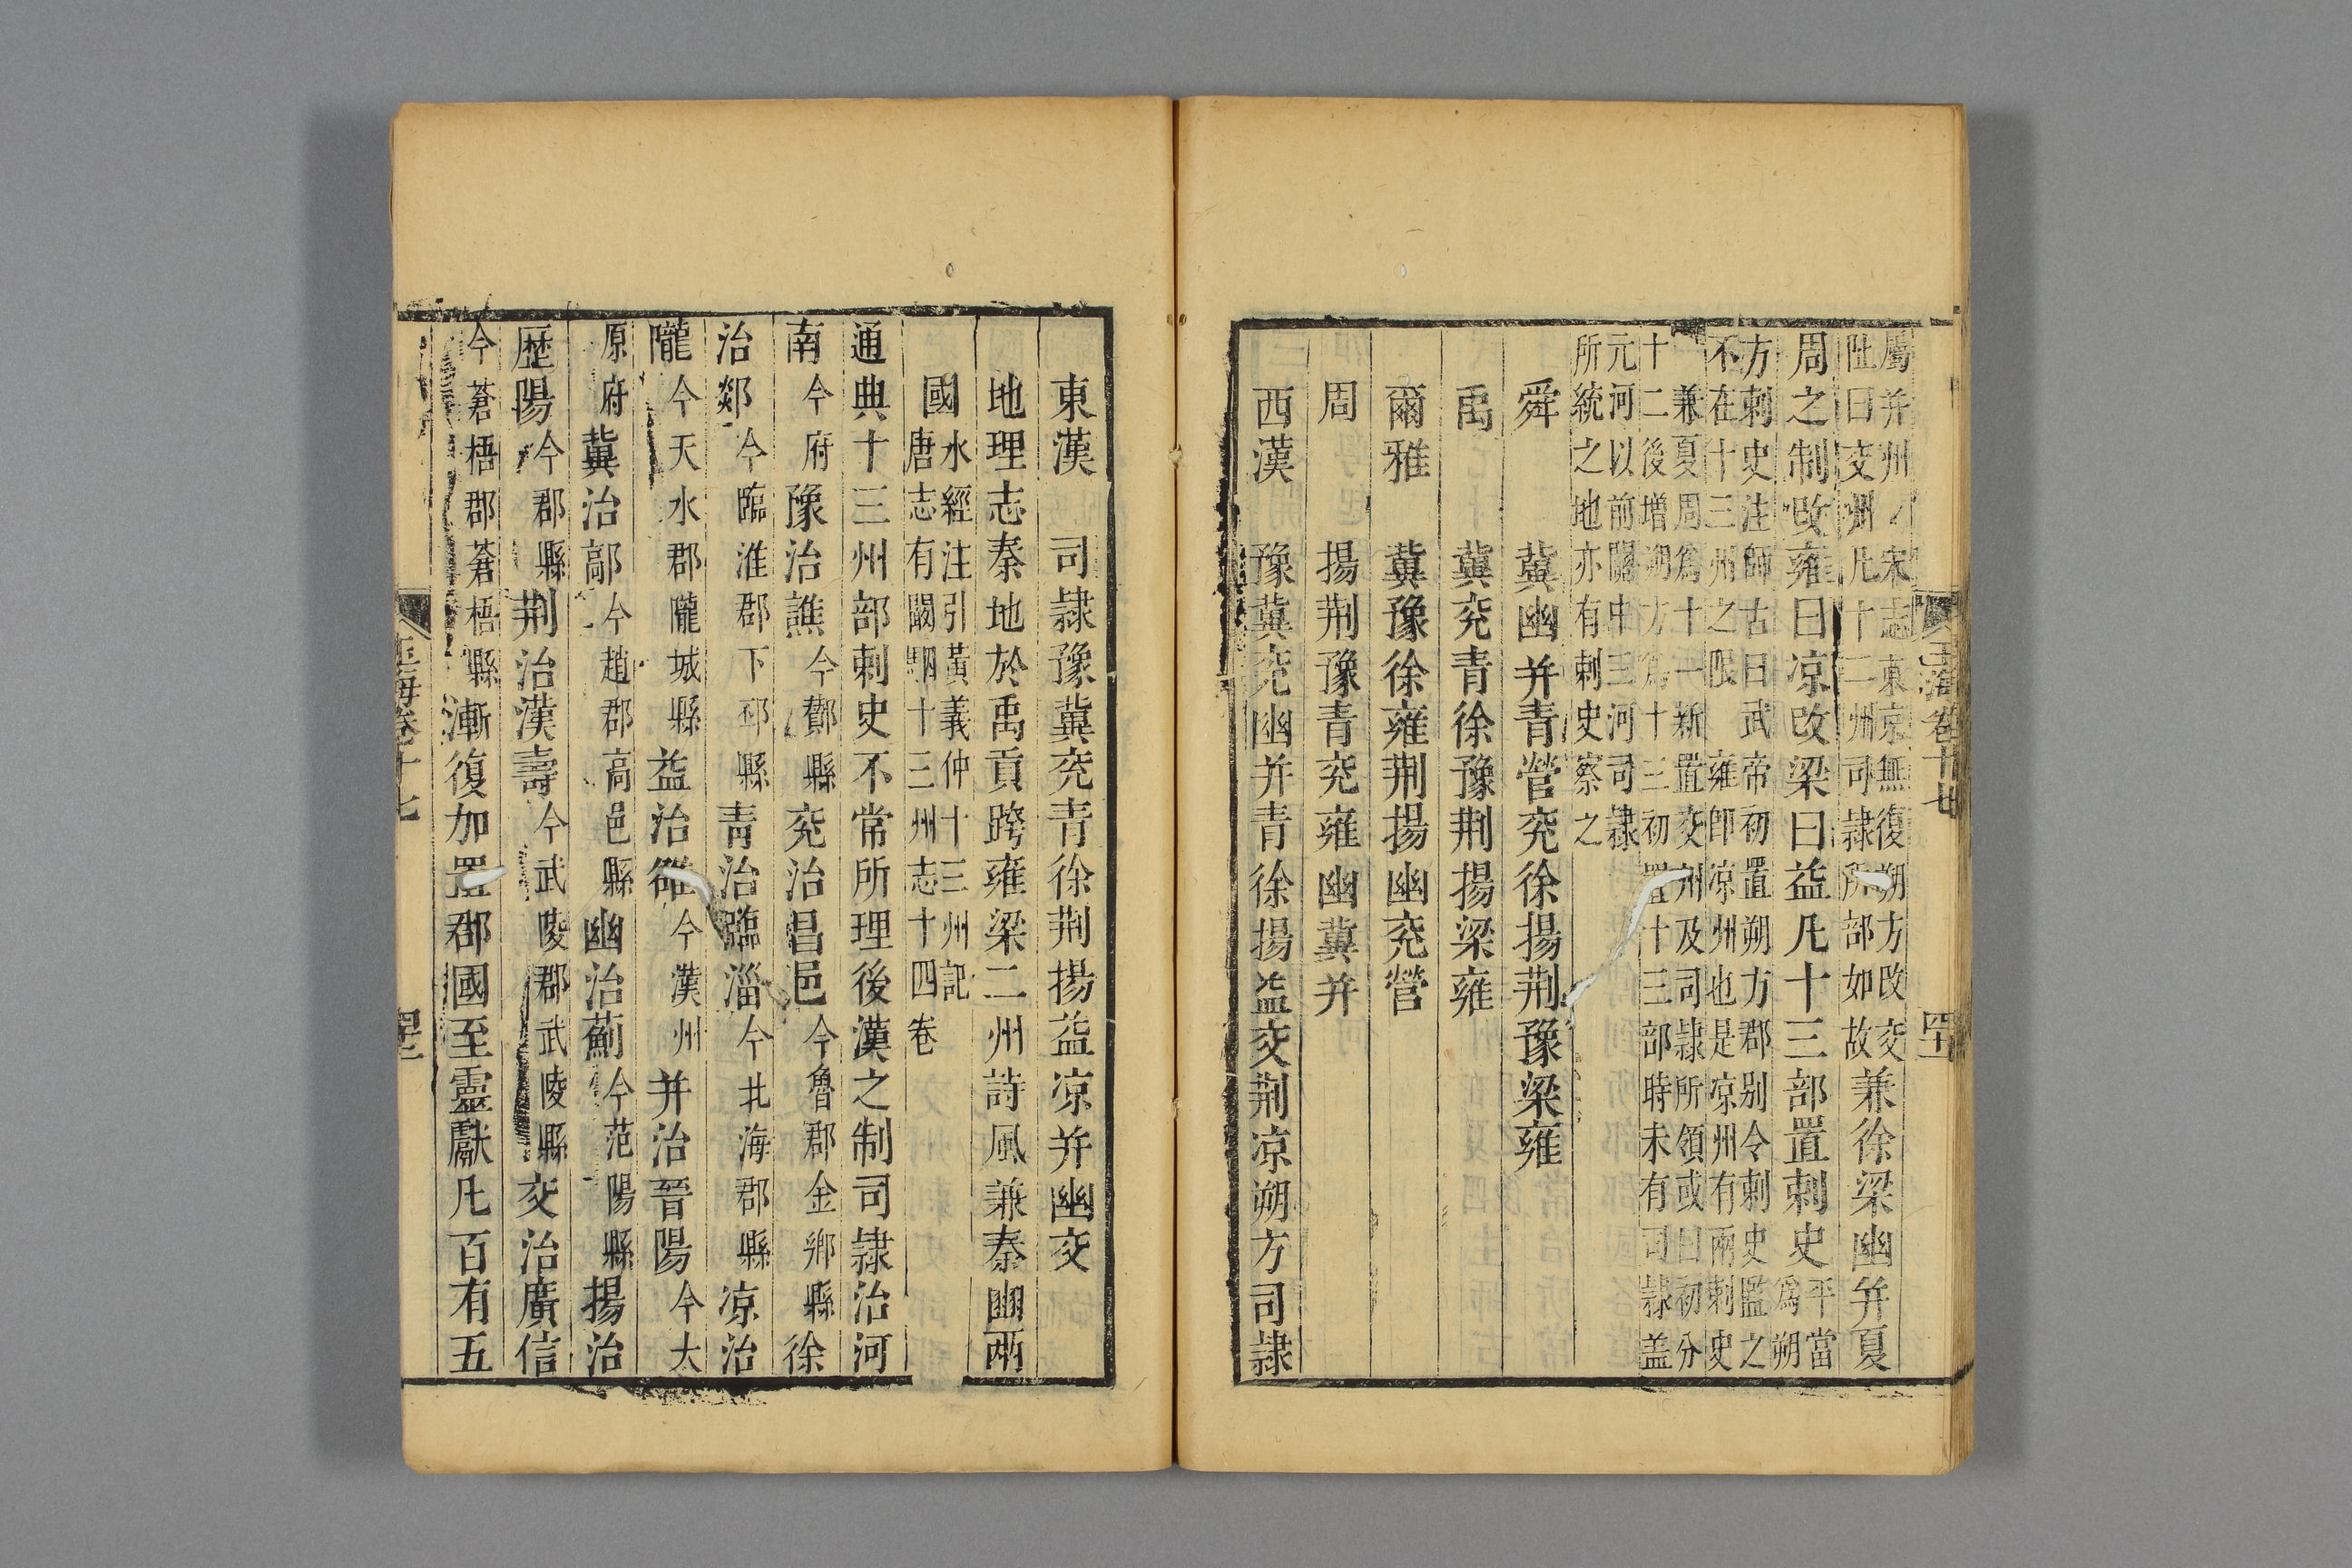 玉海卷十七
屬并州 宋志東京無復朔方改交
阯曰交州凡十二州司隸所部如故兼徐梁幽并夏
周之制改雍曰凉改梁曰益凡十三部置刺史平當
爲朔
方刺史注師古曰武帝初置朔方郡别令刺史監之
不在十三州之限 雍卽凉州也是凉州有兩刺史
兼夏周爲十一新置交州及司隷所領或曰初分
十二後增朔方爲十三初置十三部時未有司隷盖
元河以前關中三河司隷
所統之地亦有刺史察之
舜 冀幽并青營兖徐揚荆豫梁雍
禹 冀兖青徐豫荆揚梁雍
爾雅 冀豫徐雍荆揚幽兖營
周 揚荆豫青兖雍幽冀并
西漢 豫冀兖幽并青徐揚益交荆凉朔方司隷
東漢 司隷豫冀兖青徐荆揚益凉并幽交
地理志秦地於禹貢跨雍梁二州詩風兼秦豳兩
國水經注引黃義仲十三州記
唐志有闞駰十三州志十四卷
通典十三州部刺史不常所理後漢之制司隷治河
南今府豫治譙今酇縣兖治昌邑今魯郡金鄉縣徐
治郯今臨淮郡下邳縣青治臨淄今北海郡縣凉治
隴今天水郡隴城縣益治雒今漢州并治晉陽今太
原府冀治鄗今趙郡高邑縣幽治薊今范陽縣揚治
歷陽今郡縣荆治漢壽今武陵郡武陵縣交治廣信
今蒼梧郡蒼梧縣漸復加置郡國至靈獻凡百有五
玉海卷十七